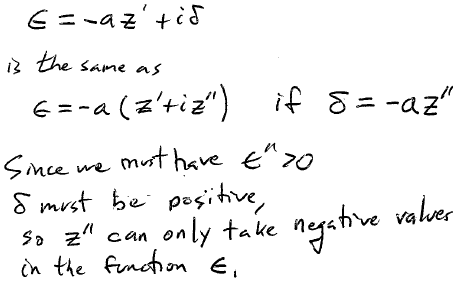 ϵ = -az' + iδ
is the same as
ϵ = -a (z' + iz'') if δ = -az''
Since we must have ϵ'' > 0
δ must be positive,
so z'' can only take negative values
in the function ϵ.